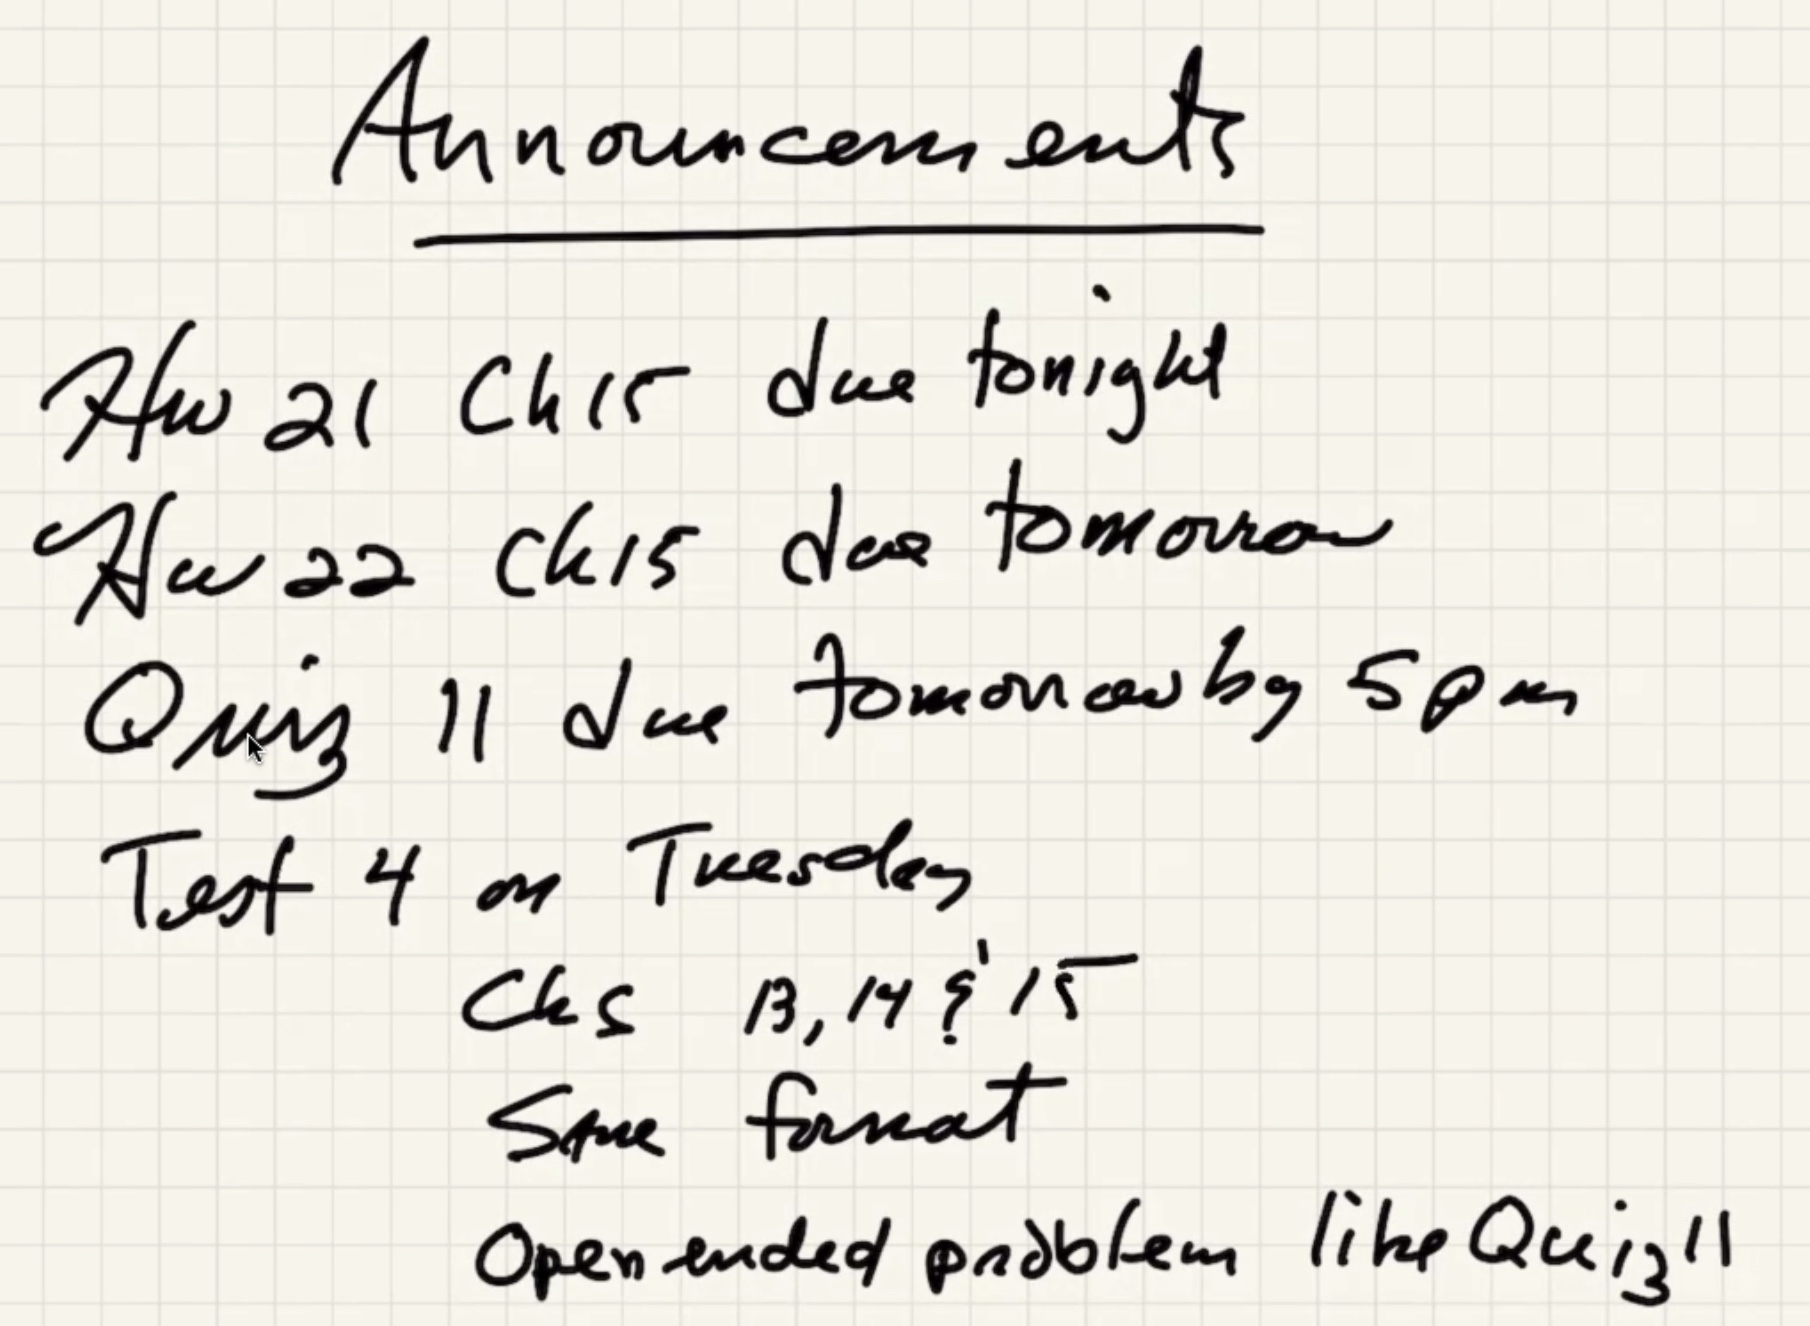 Announcements
Hw 21 Ch 15 due tonight
Hw 22 Ch 15 due tomorrow
Quiz 11 due tomorrow by 5pm
Test 4 on Tuesday
Chs 13, 14 & 15
Same format
Open ended problem like Quiz 11